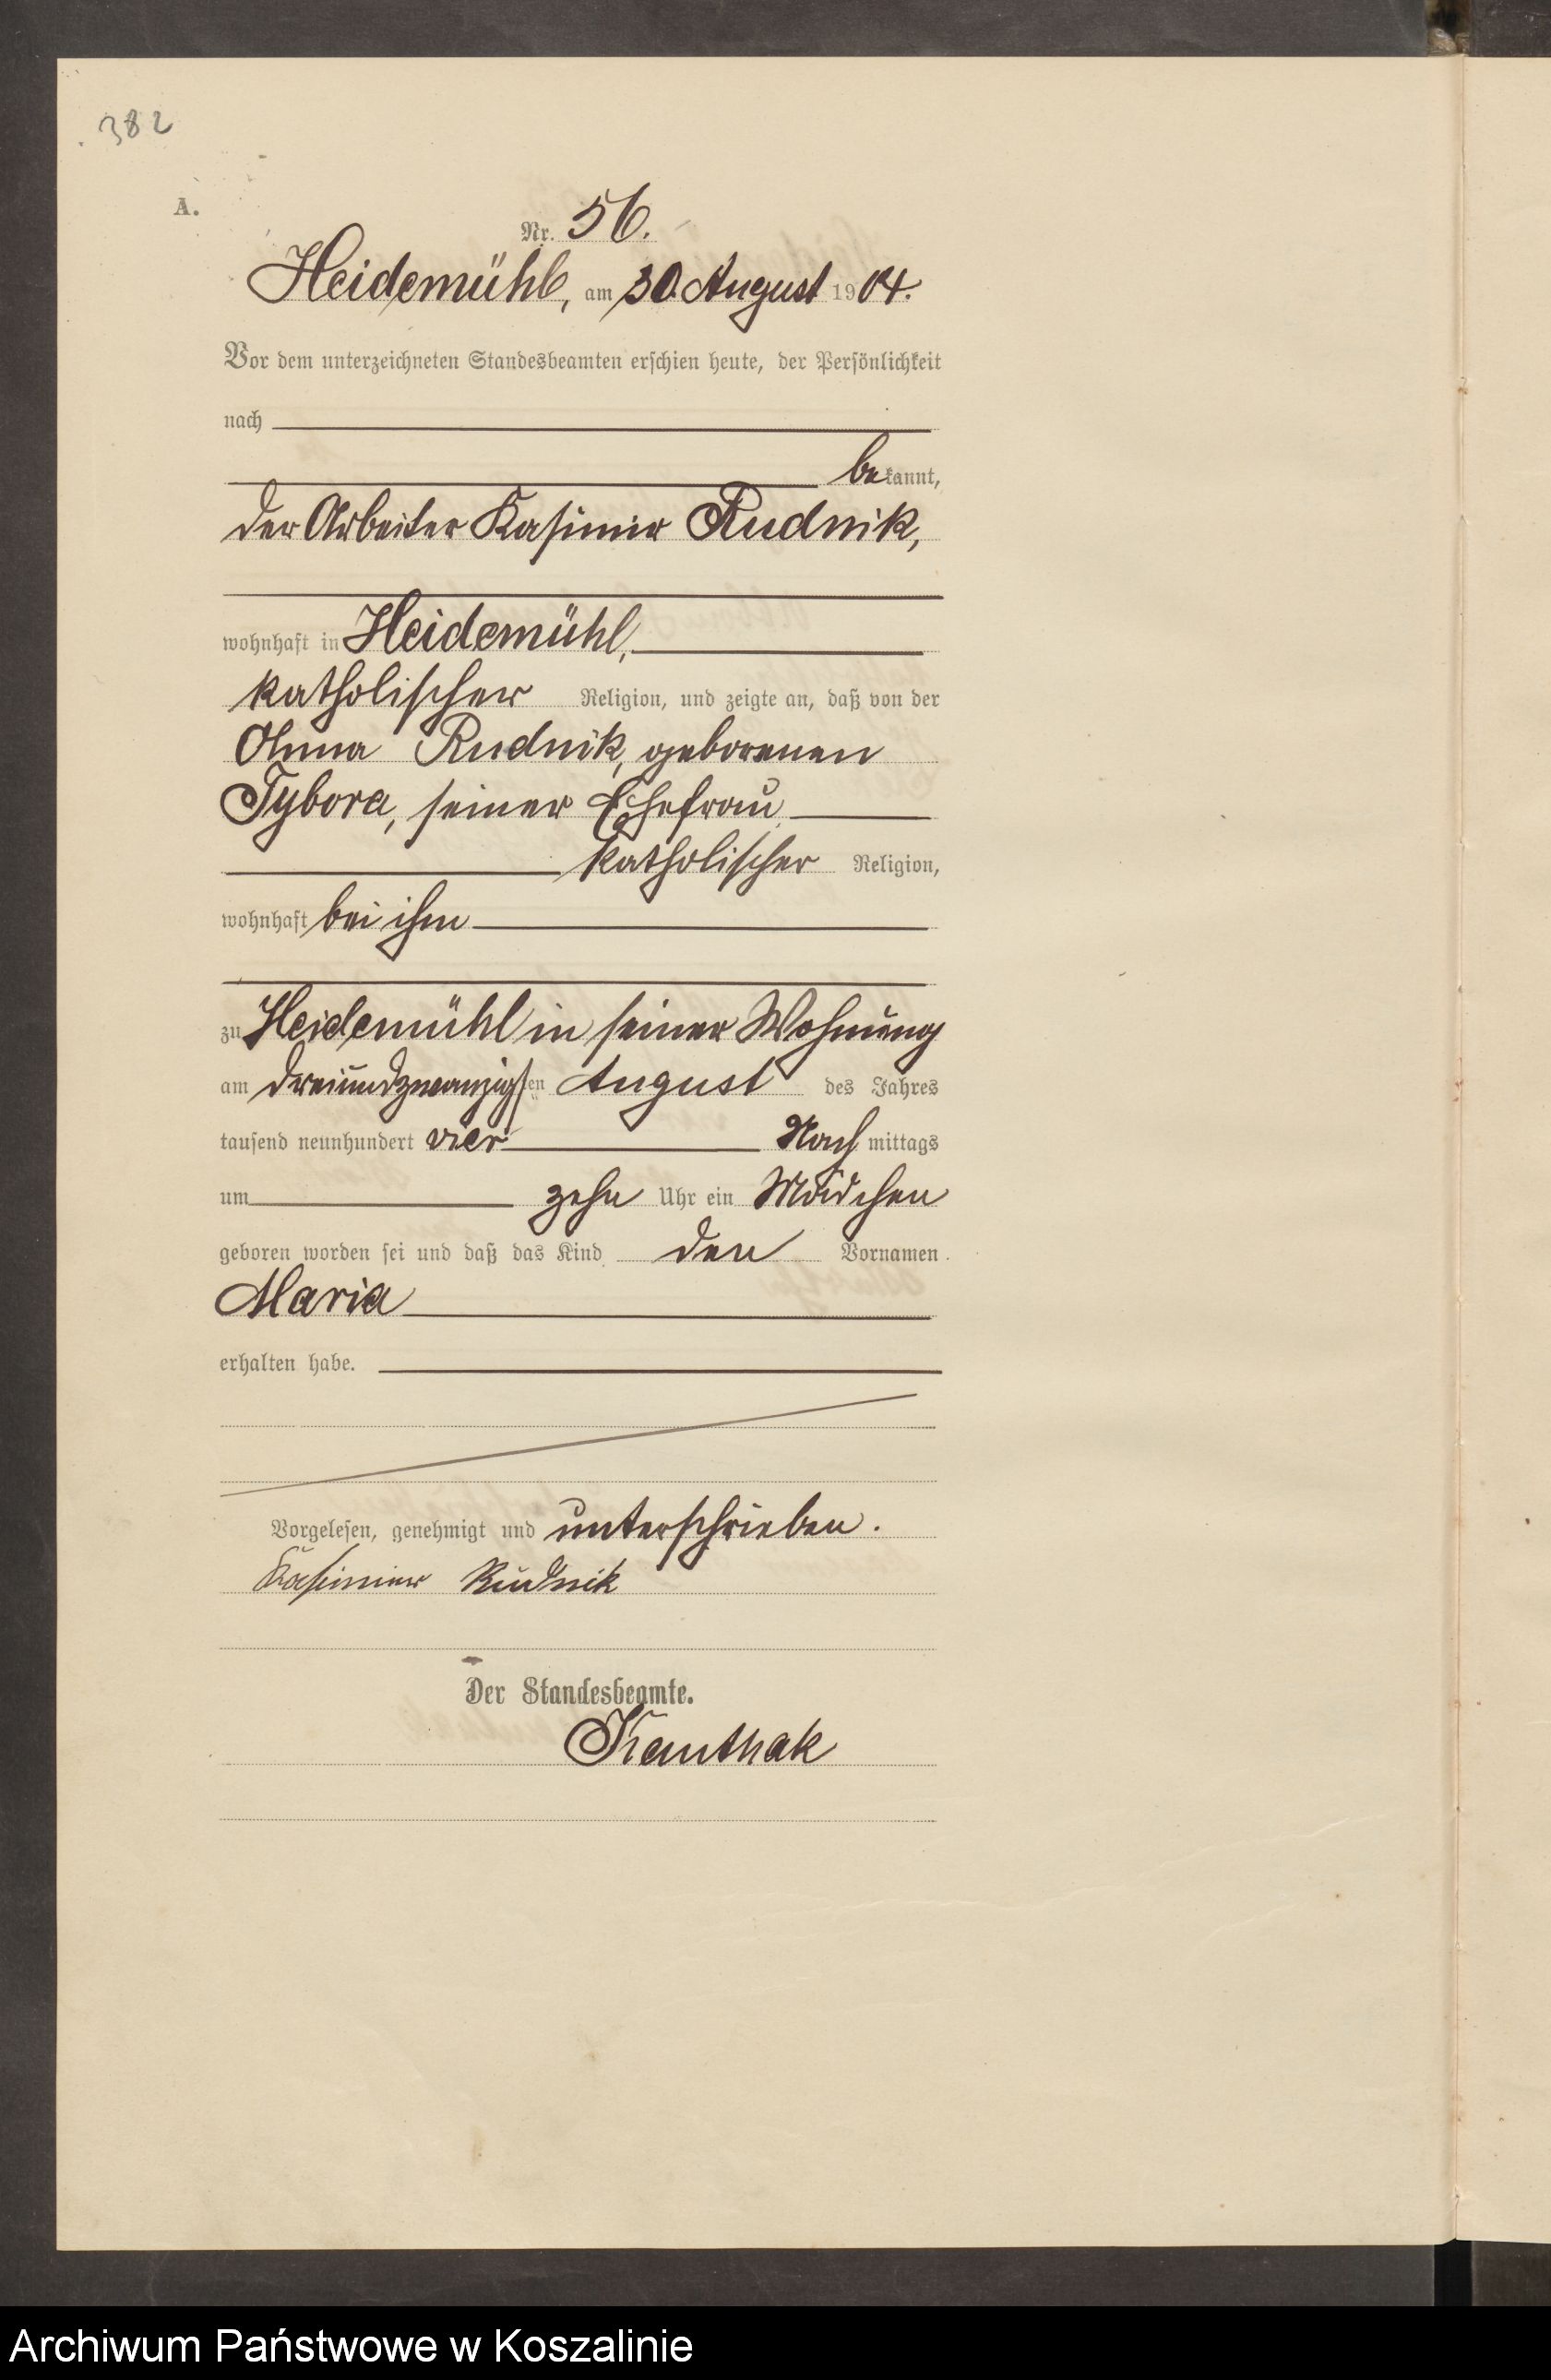 382
A.
Nr. 56.
Heidemühl, am 30. August 1904.
Vor dem unterzeichneten Standesbeamten erschien heute, der Persönlichkeit
nach
bekannt,
der Arbeiter Kasimir Rudnik,
wohnhaft in Heidemühl,
katholischer Religion, und zeigte an, daß von der
Anna Rudnik, geborenen
Tybora, seiner Ehefrau,
katholischer Religion,
wohnhaft bei ihm
zu Heidemühl in seiner Wohnung
am dreiundzwanzigsten August des Jahres
tausend neunhundert vier Nachmittags
um zehn Uhr ein Mädchen
geboren worden sei und daß das Kind den Vornamen
Maria
erhalten habe.
Vorgelesen, genehmigt und unterschrieben.
Kasimier Rudnik
Der Standesbeamte.
Kanthak
Archiwum Państwowe w Koszalinie